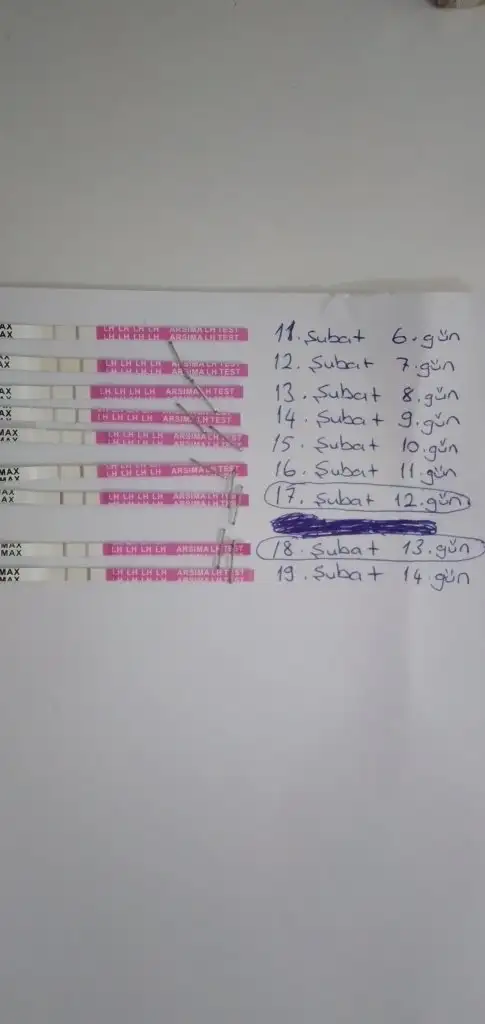 AX LH LH LH LH ARSIMA LH TEST 11. Şubat 6.gün
AX LH LH LH LH ARSIMA LH TEST
AX LH LH LH LH ARSIMA LH TEST 12. Şubat 7.gün
LH LH LH LH ARSIMA LH TEST
LH LH LH LH ARSIMA LH TEST 13. Şubat 8.gün
AX LH LH LH LH ARSIMA LH TEST 14. Şubat 9.gün
AX
MAX LH LH LH LH ARSIMA LH TEST 15. Şubat 10.gün
MAX LH LH LH LH ARSIMA LH TEST 16. Şubat 11.gün
MAX
AX LH LH LH LH ARSIMA LH TEST 17. Şubat 12.gün
MAX LH LH LH LH ARSIMA LH TEST 18. Şubat 13.gün
MAX
MAX LH LH LH LH ARSIMA LH TEST 19. Şubat 14.gün
MAX LH LH LH LH ARSIMA LH TEST